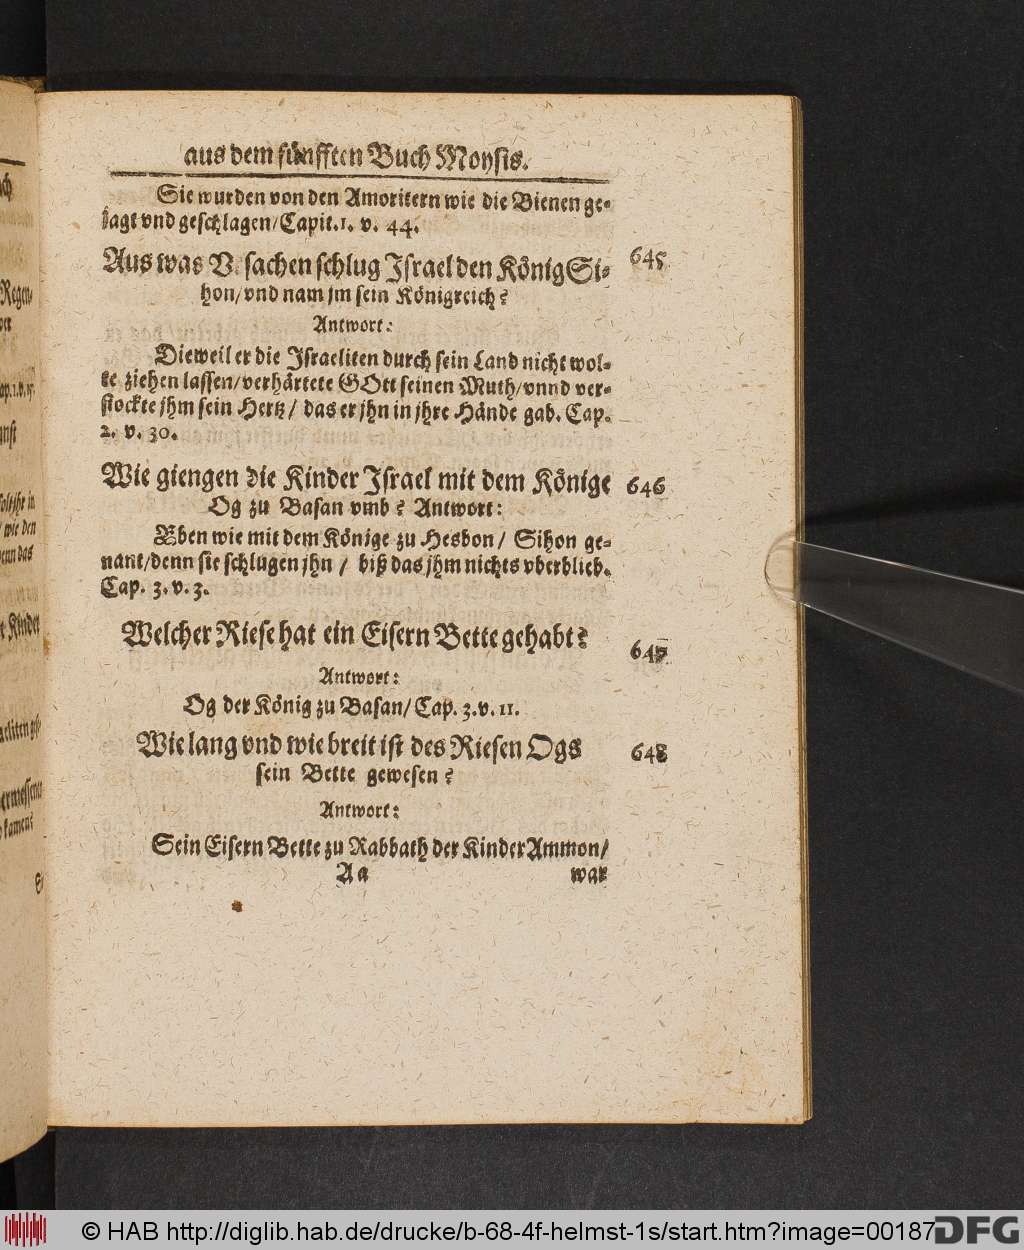 aus dem fünfften Buch Moysis.
Sie wurden von den Amoritern wie die Bienen ge-
jagt vnd geschlagen/Capit.1. v. 44.
Aus was V sachen schlug Israel den König Si- 645
hon/vnd nam jm sein Königreich?
Antwort:
Dieweil er die Israeliten durch sein Land nicht wol-
te ziehen lassen/verhärtete GOtt seinen Muth/vnnd ver-
stockte jhm sein Hertz/ das er jhn in jhre Hände gab. Cap.
2. v. 30.
Wie giengen die Kinder Israel mit dem Könige 646
Og zu Basan vmb? Antwort:
Eben wie mit dem Könige zu Hesbon/ Sihon ge-
nant/denn sie schlugen jhn/ biß das jhm nichts vberblieb.
Cap. 3. v. 3.
Welcher Riese hat ein Eisern Bette gehabt? 647
Antwort:
Og der König zu Basan/ Cap. 3.v. 11.
Wie lang vnd wie breit ist des Riesen Ogs 648
sein Bette gewesen?
Antwort:
Sein Eisern Bette zu Rabbath der Kinder Ammon/
Aa war
© HAB http://diglib.hab.de/drucke/b-68-4f-helmst-1s/start.htm?image=00187
DFG